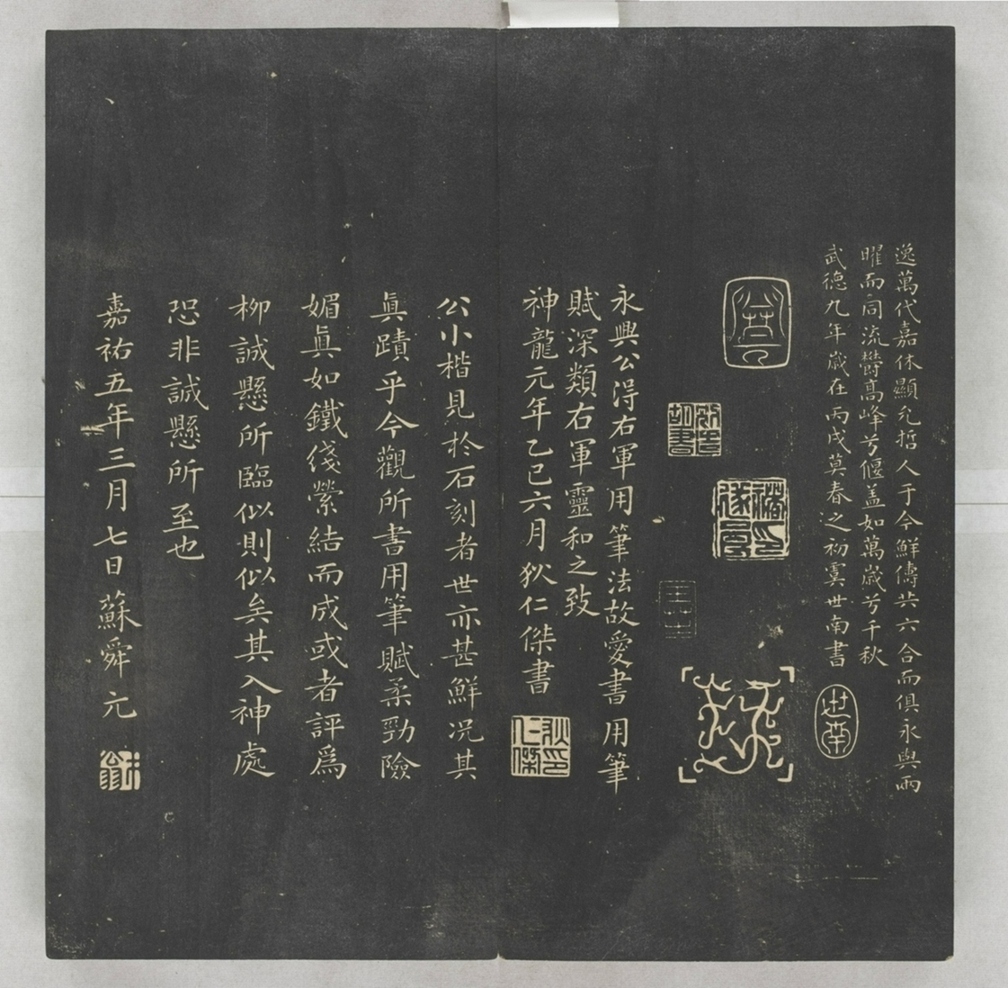 逸萬代嘉休顯允哲人于今鮮儔共六合而俱永與兩
曜而同流欝高峰兮偃盖如萬歲兮千秋
武德九年歲在丙戌莫春之初虞世南書
世南
永興公得右軍用筆法故愛書用筆
賦深類右軍靈和之致
神龍元年乙巳六月狄仁傑書
狄仁傑印
公小楷見於石刻者世亦甚鮮况其
真蹟乎今觀所書用筆賦柔勁險
媚真如鐵綫縈結而成或者評爲
柳誠懸所臨似則似矣其入神處
恐非誠懸所至也
嘉祐五年三月七日蘇舜元